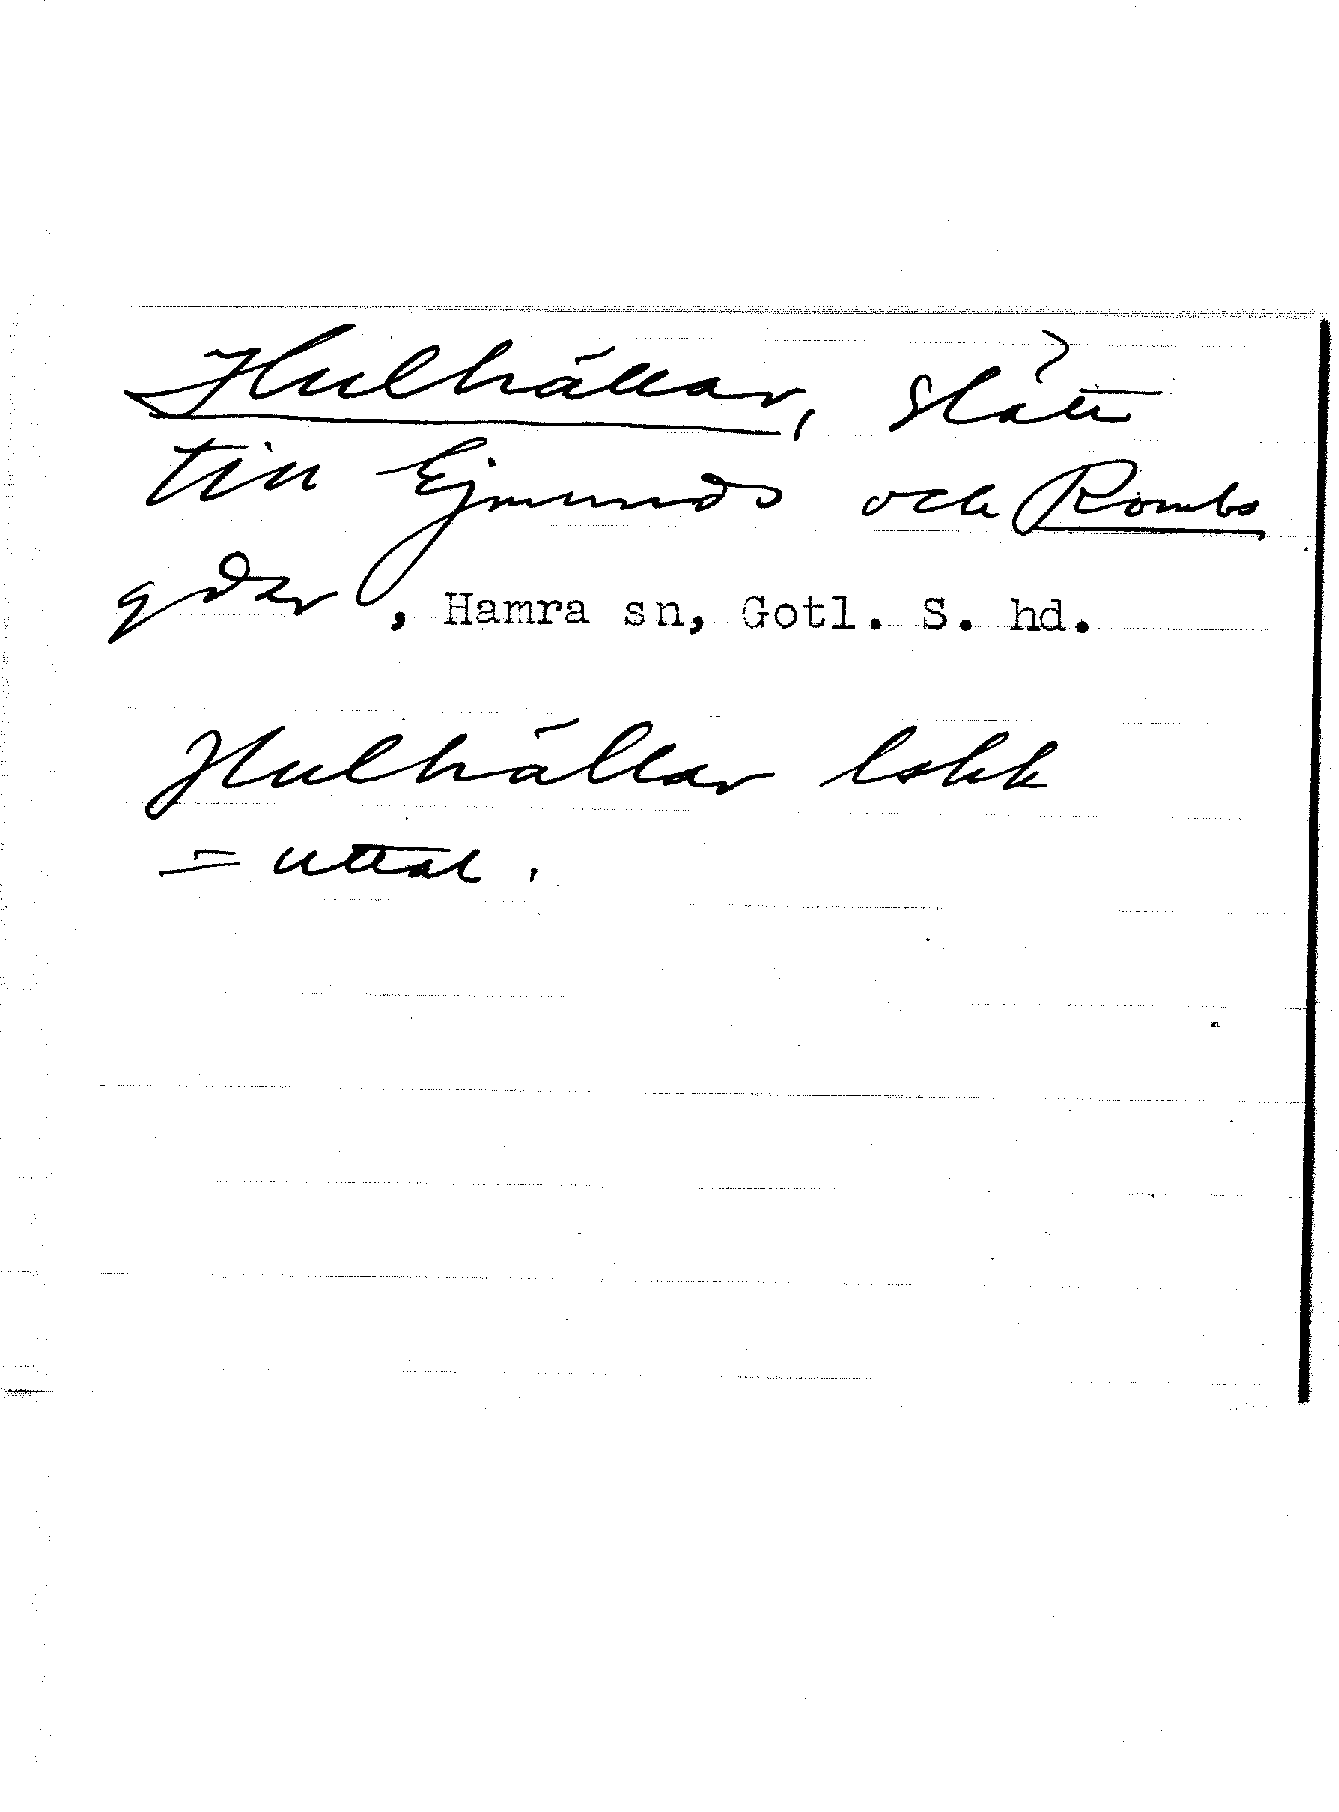 Hulhällar, slått
till Ejmunds och Rombs
gdar, Hamra sn, Gotl. S. hd.
Hulhällar lokk
= uttal.